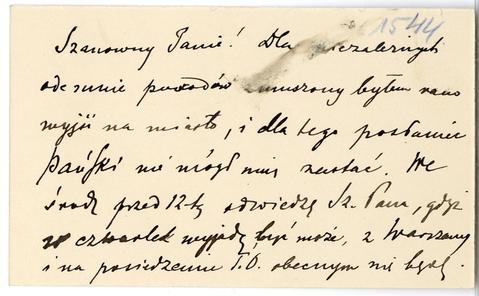 1544
Szanowny Panie! Dla niezależnych
odemnie powodów zmuszony byłem rano
wyjść na miasto, i dla tego posłaniec
Pański nie mógł mię zastać. We
środę przed 12-tą odwiedzę Sz. Pana, gdyż
w czwartek wyjadę być może, z Warszawy
i na posiedzeniu T.O. obecnym nie będę.